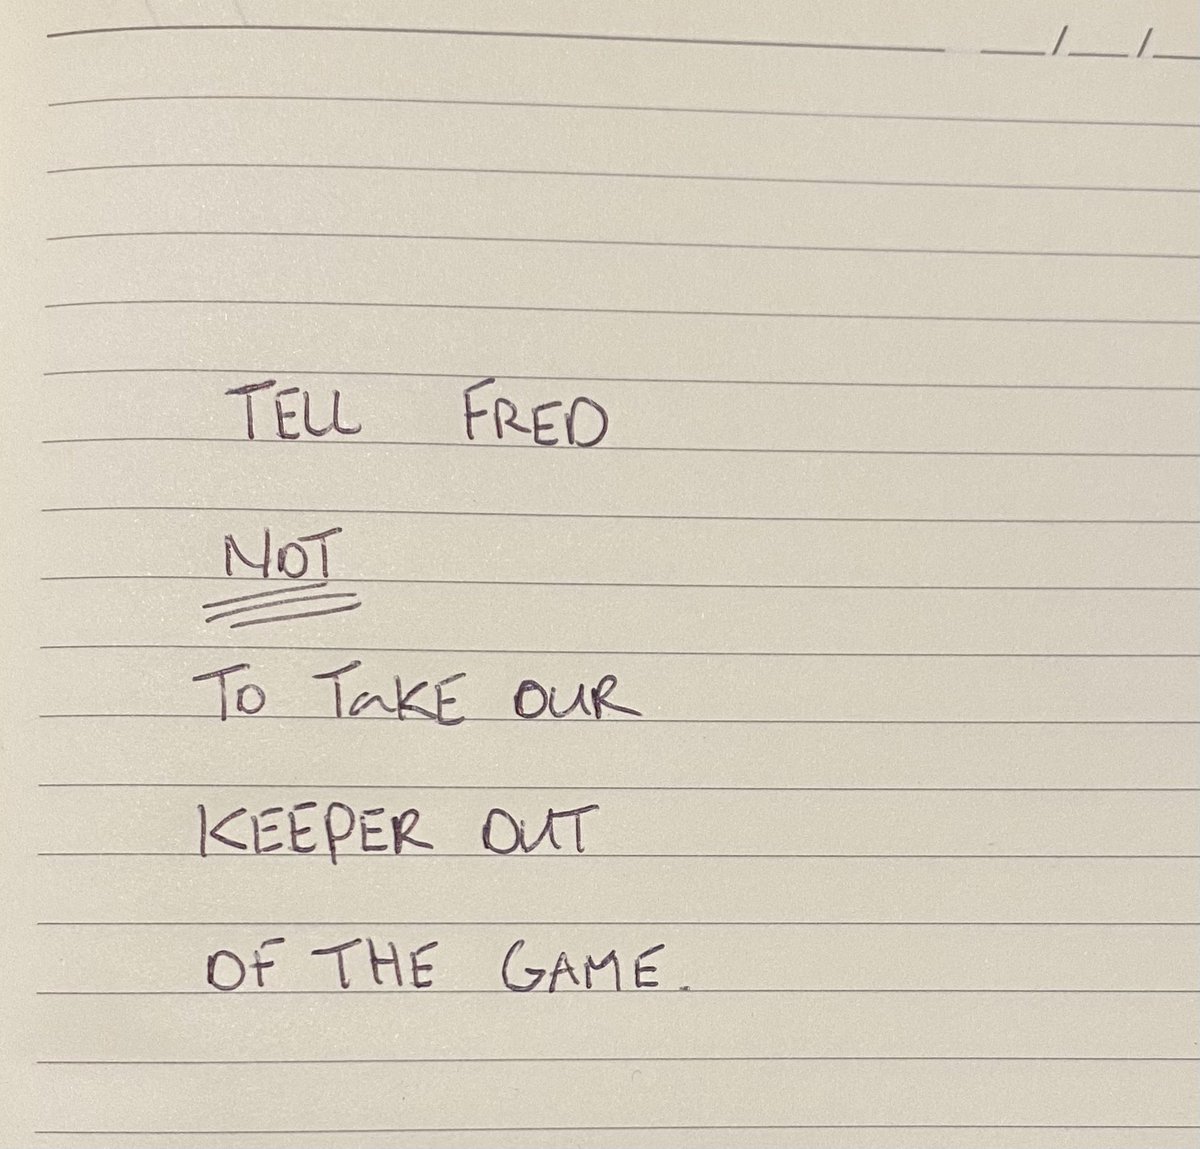 TELL FRED
NOT
TO TaKE OUR
KEEPER OUT
OF THE GAME.